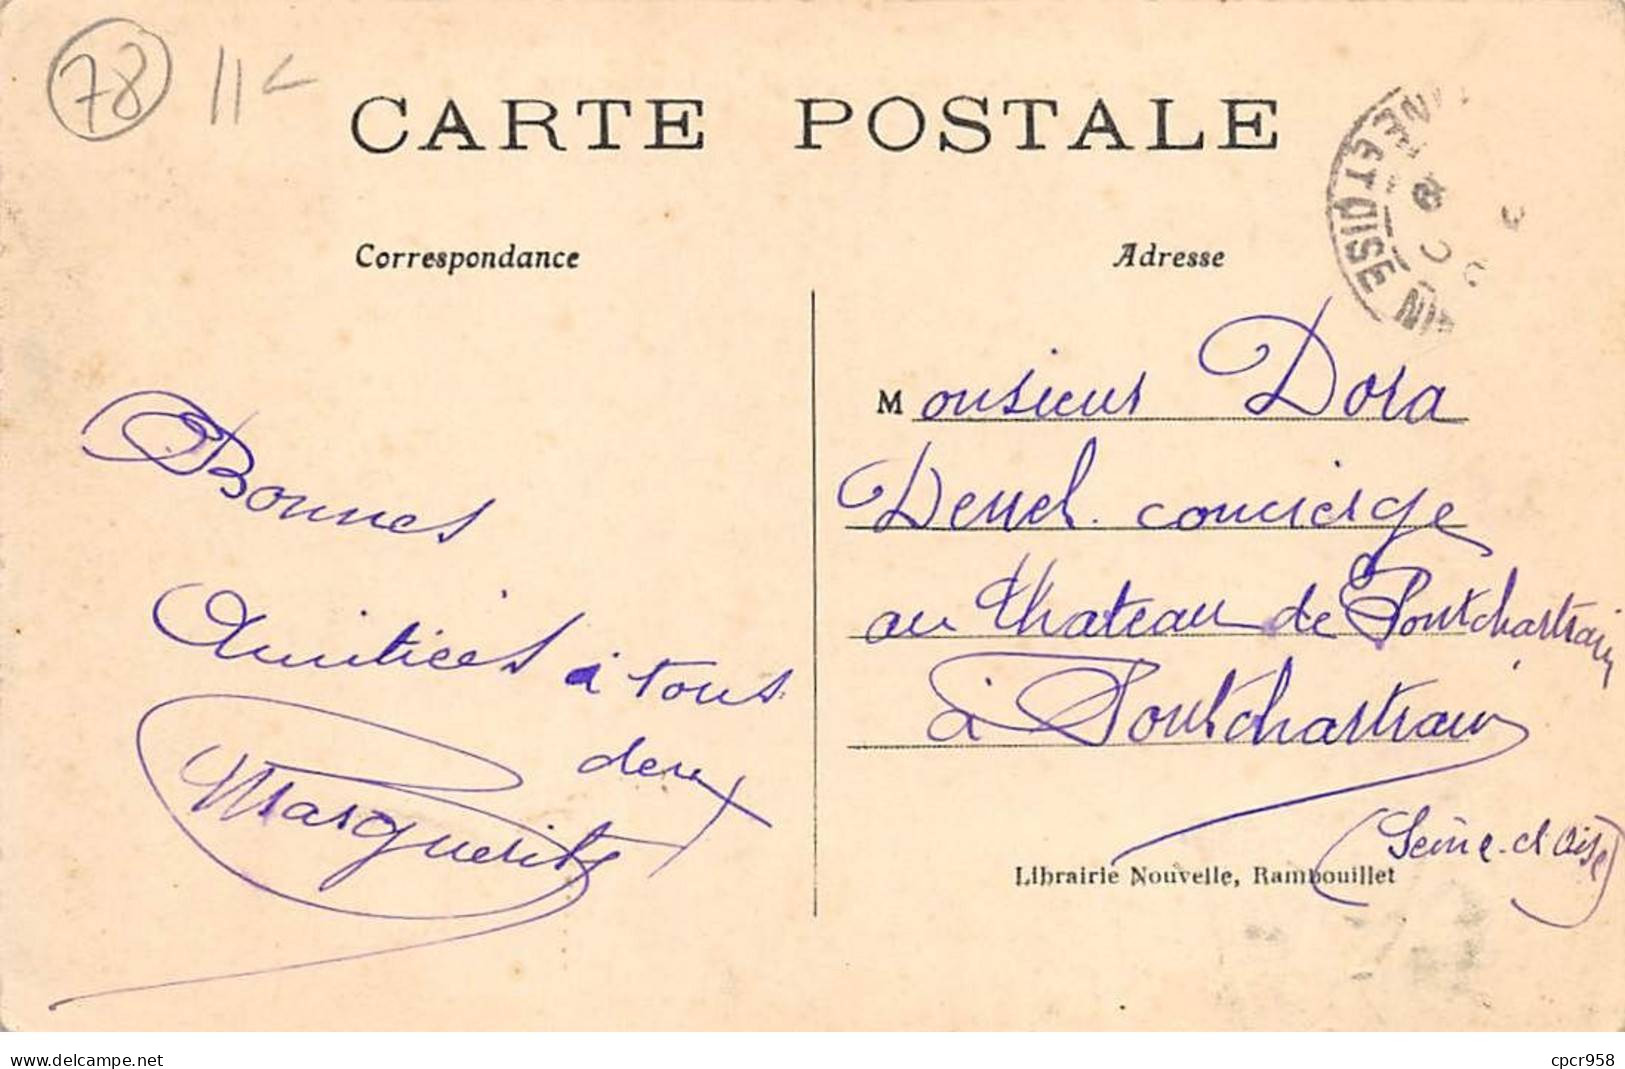 78 11
CARTE POSTALE
Correspondance
Adresse
SEINE ET OISE
Bonnes
Amitiées à tous
deux
Marguerite
Monsieur Dora
concierge
au Château de Pontchartrain
à Pontchartrain
(Seine-et-Oise)
Librairie Nouvelle, Rambouillet
www.delcampe.net
cpcr958